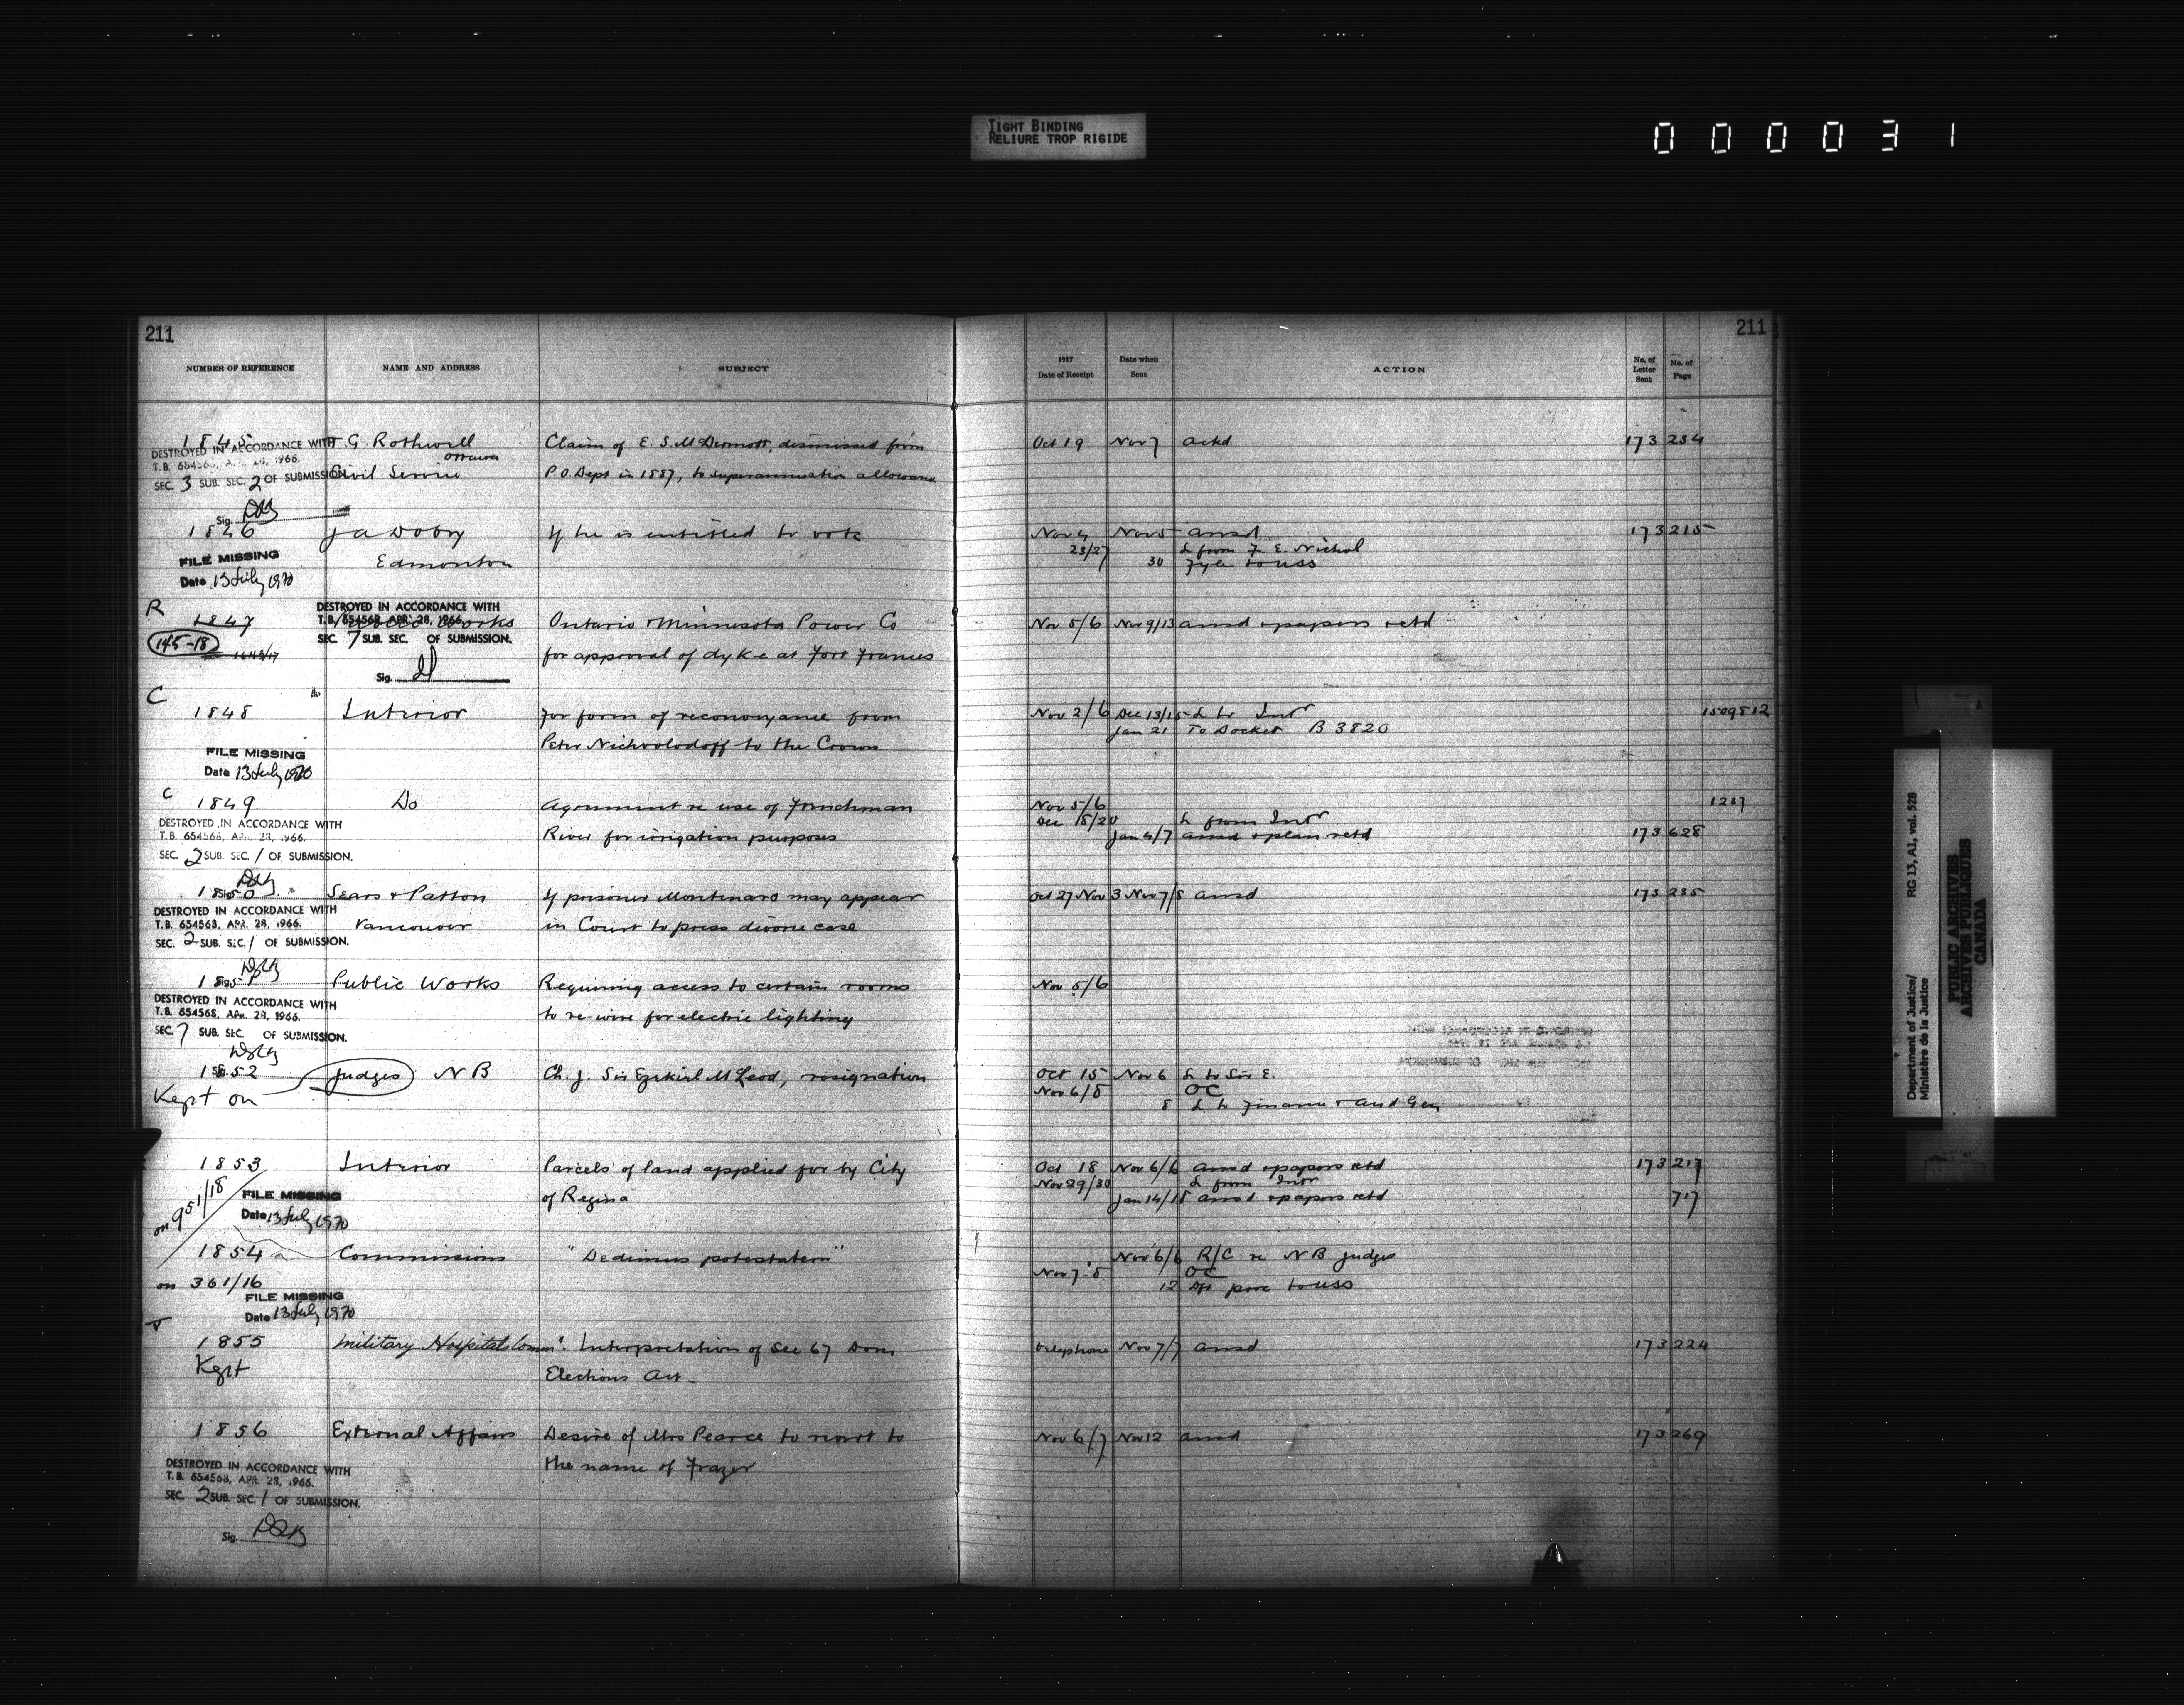 TIGHT BINDING
RELIURE TROP RIGIDE
000031
211
211
NUMBER OF REFERENCE NAME AND ADDRESS SUBJECT 1917 Date of Receipt Date when Sent ACTION No. of Letter Sent No. of Page
1845 T. G. Rothwell Claim of E. S. McDermott, dismissed from Oct 19 Nov 7 ackd 173 234
Ottawa
DESTROYED IN ACCORDANCE WITH
T.B. 654568, APR. 28, 1966.
SEC. 3 SUB. SEC. 2 OF SUBMISSION.
Civil Service P.O. Dept in 1887, to superannuation allowance
Sig.
1846 J A Doby If he is entitled to vote Nov 4 Nov 5 ansd 173 215
23/27 L from F. E. Nichol
Edmonton 30 Fyle to USS
FILE MISSING
Date 13 July 1970
R
1847 Public Works Ontario & Minnesota Power Co Nov 5/6 Nov 9/13 ansd & papers retd
DESTROYED IN ACCORDANCE WITH
T.B. 654568, APR. 28, 1966.
SEC. 7 SUB. SEC. OF SUBMISSION.
145-18
for approval of dyke at Fort Frances
Sig.
C
1848 Interior For form of reconveyance from Nov 2/6 Dec 13/15 L to Intr 1509812
Jan 21 To Docket B 3820
Peter Nichvolodoff to the Crown
FILE MISSING
Date 13 July 1970
C
1849 Do Agreement re use of Frenchman Nov 5/6 1237
Dec 18/20 L from Intr
River for irrigation purposes Jan 4/7 ansd & plan retd 173 628
DESTROYED IN ACCORDANCE WITH
T.B. 654568, APR. 28, 1966.
SEC. 2 SUB. SEC. 1 OF SUBMISSION.
Sig.
1850 Sears & Patton If prisoner Montenaro may appear Oct 27 Nov 3 Nov 7/8 ansd 173 235
Vancouver in Court to press divorce case
DESTROYED IN ACCORDANCE WITH
T.B. 654568, APR. 28, 1966.
SEC. 2 SUB. SEC. 1 OF SUBMISSION.
Sig.
1851 Public Works Requiring access to certain rooms Nov 5/6
to re-wire for electric lighting
DESTROYED IN ACCORDANCE WITH
T.B. 654568, APR. 28, 1966.
SEC. 7 SUB. SEC. OF SUBMISSION.
1852 Judges N B Ch. J. Sir Ezekiel McLeod, resignation Oct 15 Nov 6 L to Sir E.
Nov 6/8 OC
Kept on 8 L to Finance & Aud Gen
1853 Interior Parcels of land applied for by City Oct 18 Nov 6/6 ansd & papers retd 173 217
Nov 29/30 L from Intr
of Regina Jan 14/15 ansd & papers retd 717
on 951/18
FILE MISSING
Date 13 July 1970
1854 Commissions "Dedimus potestatem" Nov 6/6 R/C re N B judges
Nov 7-8 OC
on 361/16 12 Dft proc to USS
FILE MISSING
Date 13 July 1970
1855 Military Hospitals Comm'n. Interpretation of Sec 67 Dom telephone Nov 7/7 ansd 173 224
Kept Elections Act-
1856 External Affairs Desire of Mrs Pearce to revert to Nov 6/7 Nov 12 ansd 173 269
the name of Frazer
DESTROYED IN ACCORDANCE WITH
T.B. 654568, APR. 28, 1966.
SEC. 2 SUB. SEC. 1 OF SUBMISSION.
Sig.
Department of Justice/
Ministère de la Justice
RG 13, A1, vol. 528
PUBLIC ARCHIVES
ARCHIVES PUBLIQUES
CANADA